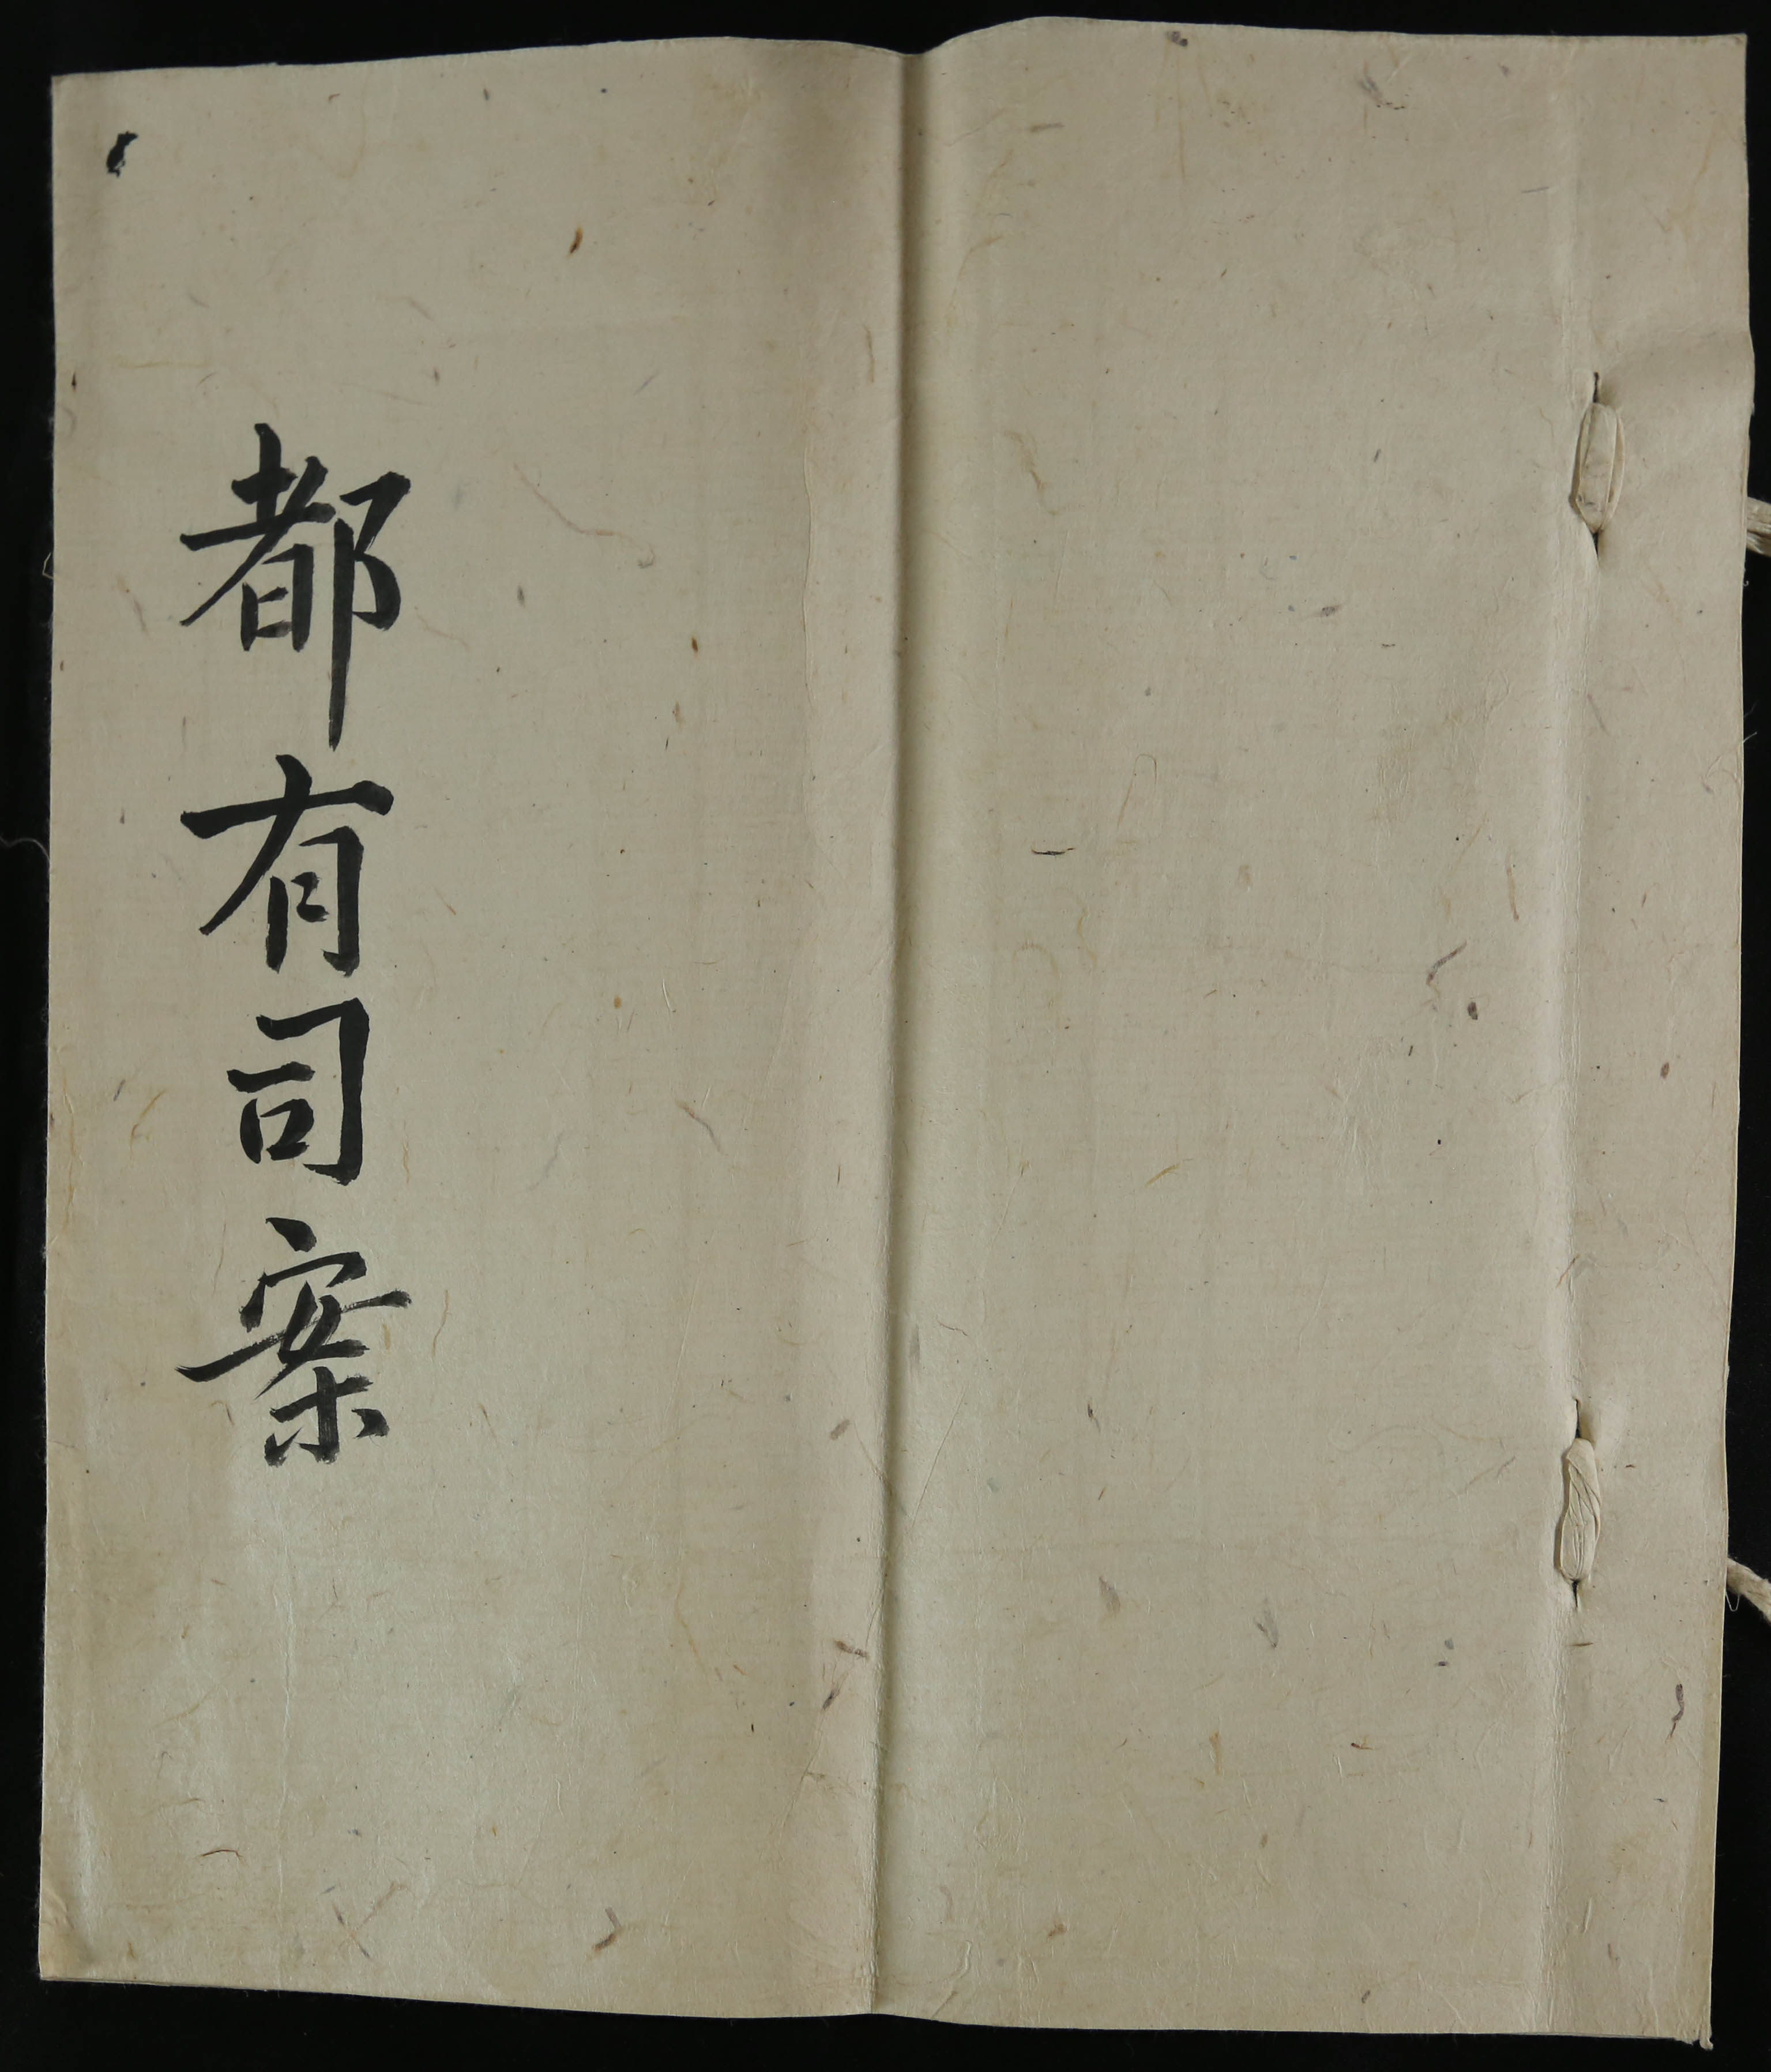 都有司案